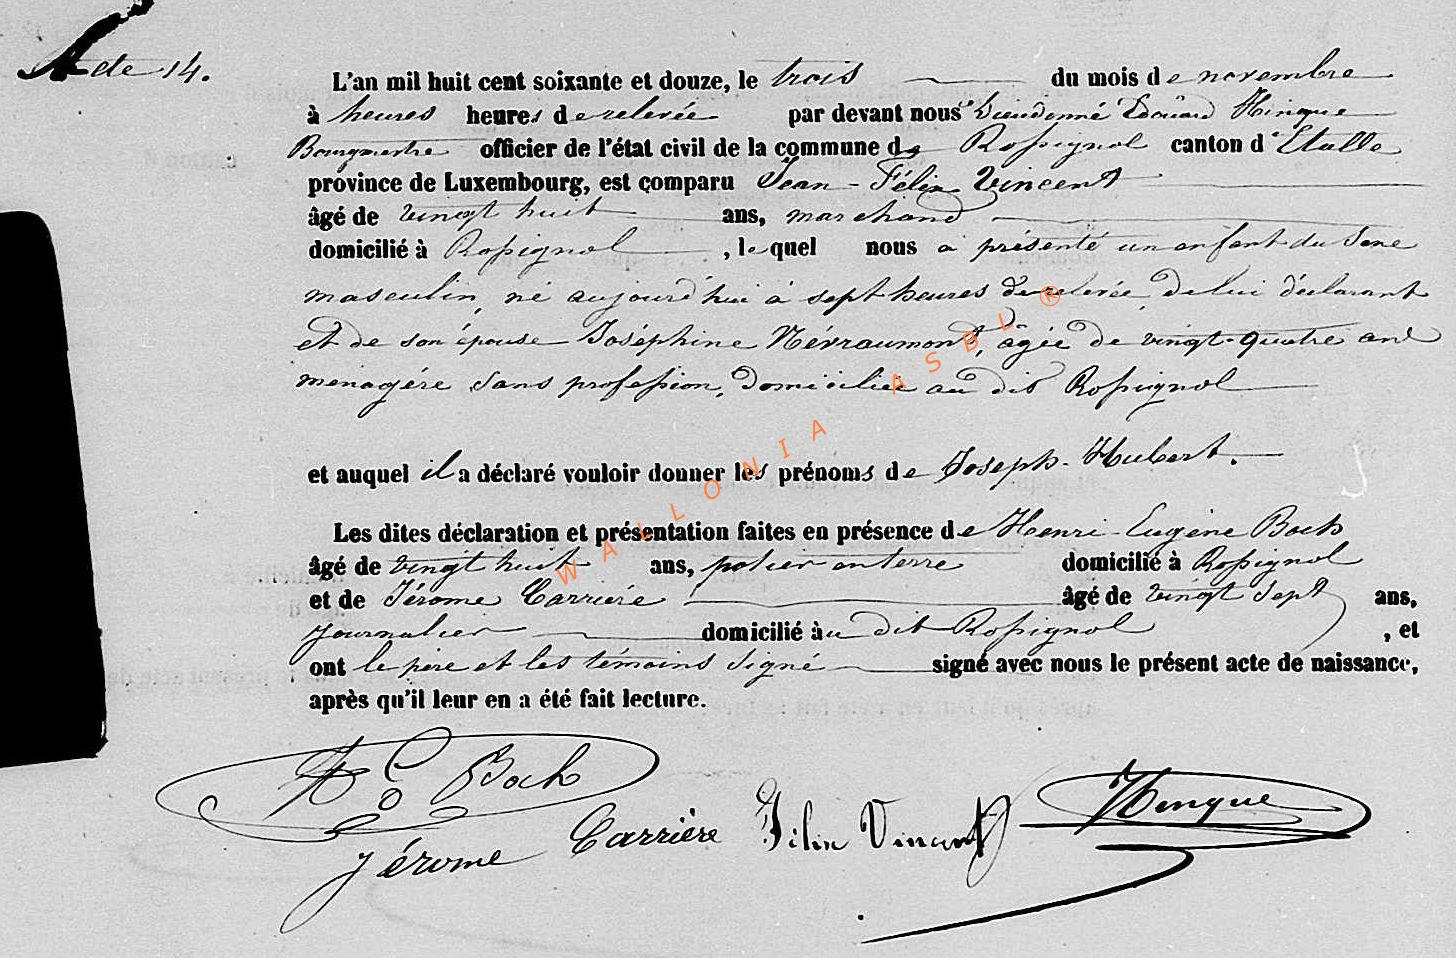 Acte 14.
L'an mil huit cent soixante et douze, le trois du mois de novembre
à heures heures de relevée par devant nous Dieudonné Edouard Hinque
Bourgmestre officier de l'état civil de la commune de Rossignol canton d'Etalle
province de Luxembourg, est comparu Jean-Félix Vincent
âgé de vingt huit ans, marchand
domicilié à Rossignol, lequel nous a présenté un enfant du sexe
masculin, né aujourd'hui à sept heures de relevée, de lui déclarant
et de son épouse Joséphine Névraumont, âgée de vingt-quatre ans
menagére sans profession, domiciliée au dit Rossignol
et auquel il a déclaré vouloir donner les prénoms de Joseph-Hubert.
Les dites déclaration et présentation faites en présence de Henri-Eugène Boch
âgé de vingt huit ans, potier en terre domicilié à Rossignol
et de Jérome Carrière âgé de vingt sept ans,
journalier domicilié au dit Rossignol, et
ont le père et les témoins signé signé avec nous le présent acte de naissance,
après qu'il leur en a été fait lecture.
Boch
Jérome Carrière Félix Vincent Hinque
WALLONIA ASBL ®